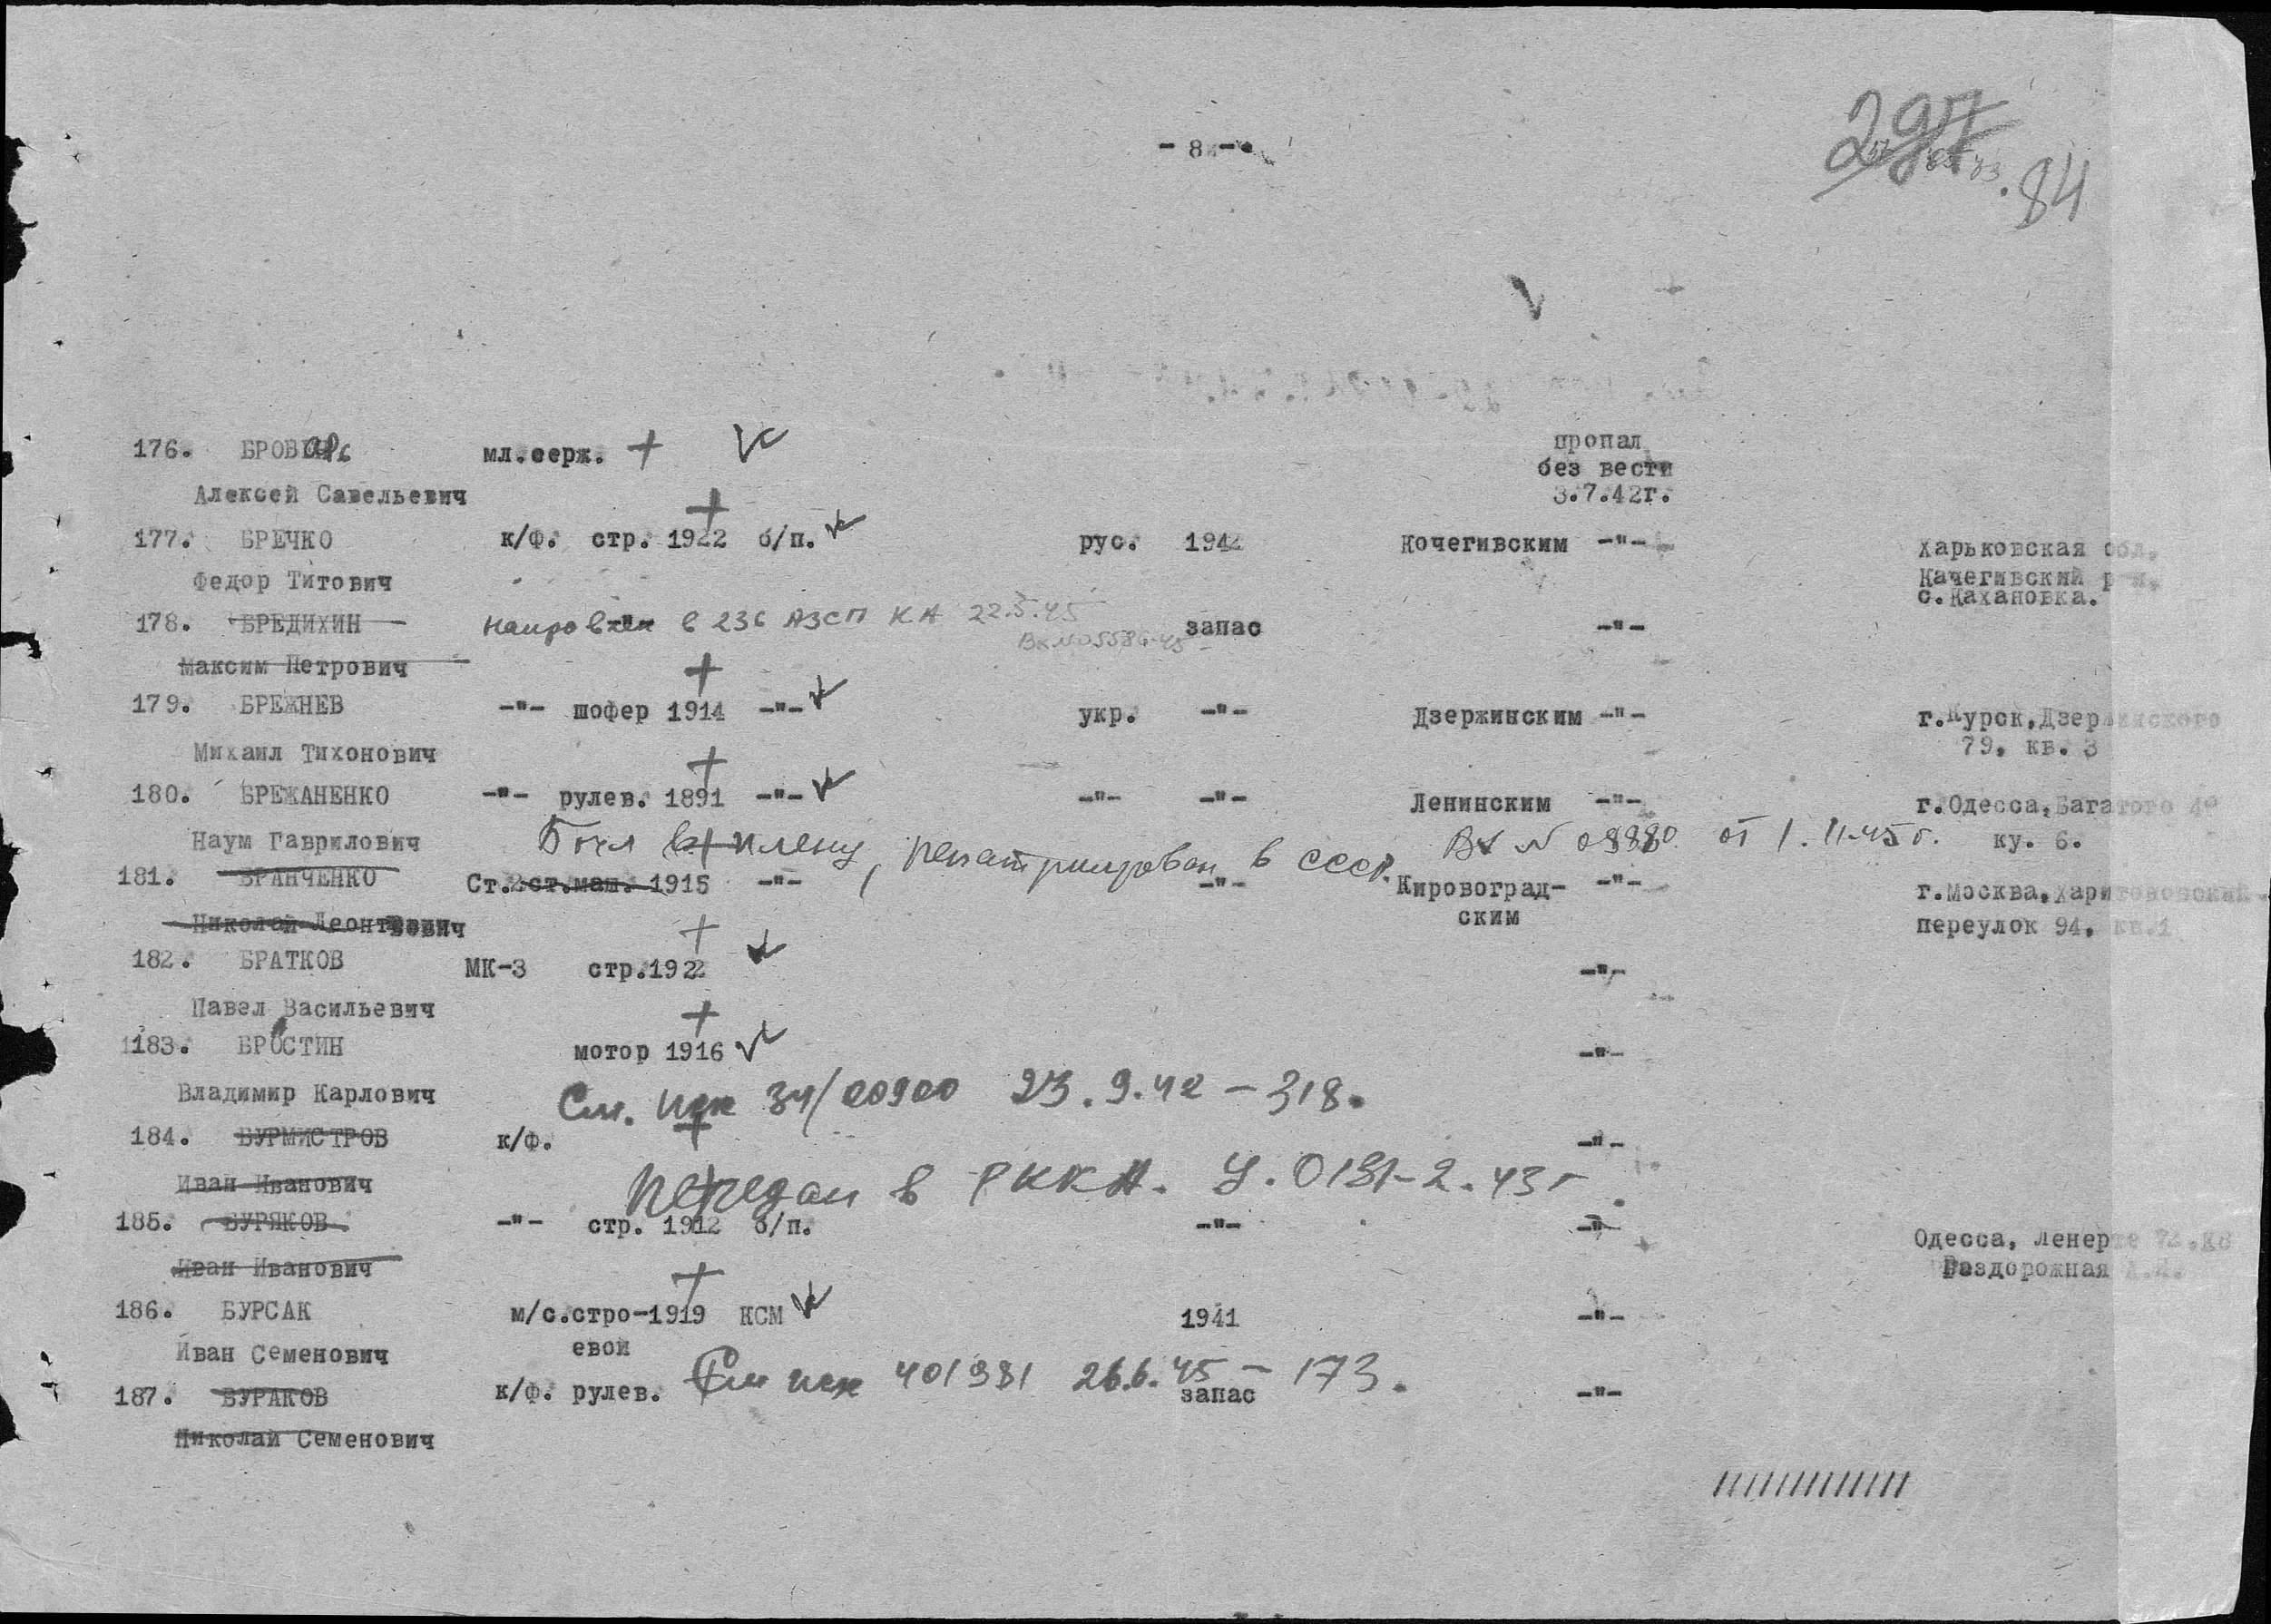 - 8 -
297
84
176. БРОВ мл.серж. пропал
без вести
Алексей Савельевич 3.7.42г.
177. БРЕЧКО к/Ф. стр. 1922 б/п. рус. 1942 Кочегивским -"- Харьковская обл.
Федор Титович Качегивский р-н.
с.Кахановка.
178. БРЕДИХИН направлен в 236 АЗСП КА 22.5.45 запас -"-
Вх №05586-45
Максим Петрович
179. БРЕЖНЕВ -"- шофер 1914 -"- укр. -"- Дзержинским -"- г.Курск,Дзержинского
Михаил Тихонович 79, кв. 3
180. БРЕЖАНЕНКО -"- рулев. 1891 -"- -"- -"- Ленинским -"- г.Одесса,Багатого
Наум Гаврилович ку. 6.
Был в плену, репатриирован в СССР. Вх № 09880 от 1.11-45г.
181. БРАНЧЕНКО Ст.2ст.маш. 1915 -"- -"- Кировоград- -"- г.Москва,Харитоновский
Николай Леонтьевич ским переулок 94, кв.1
182. БРАТКОВ МК-3 стр.1922 -"-
Павел Васильевич
183. БРОСТИН мотор 1916 -"-
Владимир Карлович
См. исх 34/00900 23.9.42 - 318.
184. БУРМИСТРОВ к/ф. -"-
Иван Иванович
Передан в РККА. У.0181-2.43г
185. БУРЯКОВ -"- стр. 1912 б/п. -"- -"- Одесса, Ленер
Иван Иванович Раздорожная
186. БУРСАК м/с.стро-1919 КСМ 1941 -"-
Иван Семенович евой
См исх 401981 26.6.45 - 173.
187. БУРАКОВ к/ф. рулев. запас -"-
Николай Семенович
////////////